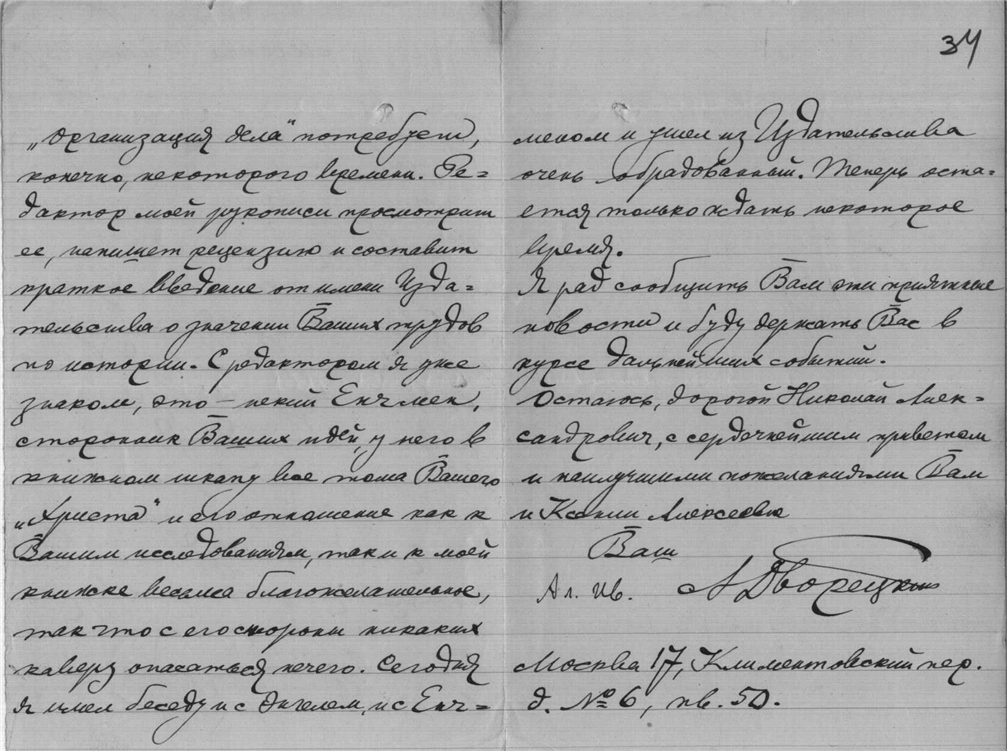 34
„организация дела“ потребует,
конечно, некоторого времени. Ре=
дактор моей рукописи просмотрит
ее, напишет рецензию и составит
краткое введение от имени Изда=
тельства о значении Ваших трудов
по истории. С редактором я уже
знаком, это – некий Енчмен,
сторонник Ваших идей, у него в
книжном шкапу все тома Вашего
„Христа“ и его отношение как к
Вашим исследованиям, так и к моей
книжке весьма благожелательное,
так что с его стороны никаких
каверз опасаться нечего. Сегодня
я имел беседу и с Энгелем, и с Енч=
меном и ушел из Издательства
очень обрадованный. Теперь оста=
ется только ждать некоторое
время.
Я рад сообщить Вам эти приятные
новости и буду держать Вас в
курсе дальнейших событий.
Остаюсь, дорогой Николай Алек-
сандрович, с сердечнейшим приветом
и наилучшими пожеланиями Вам
и Ксении Алексеевне
Ваш
Ал. Ив. АДворецкий
Москва 17, Климентовский пер.
д. № 6, кв. 50.